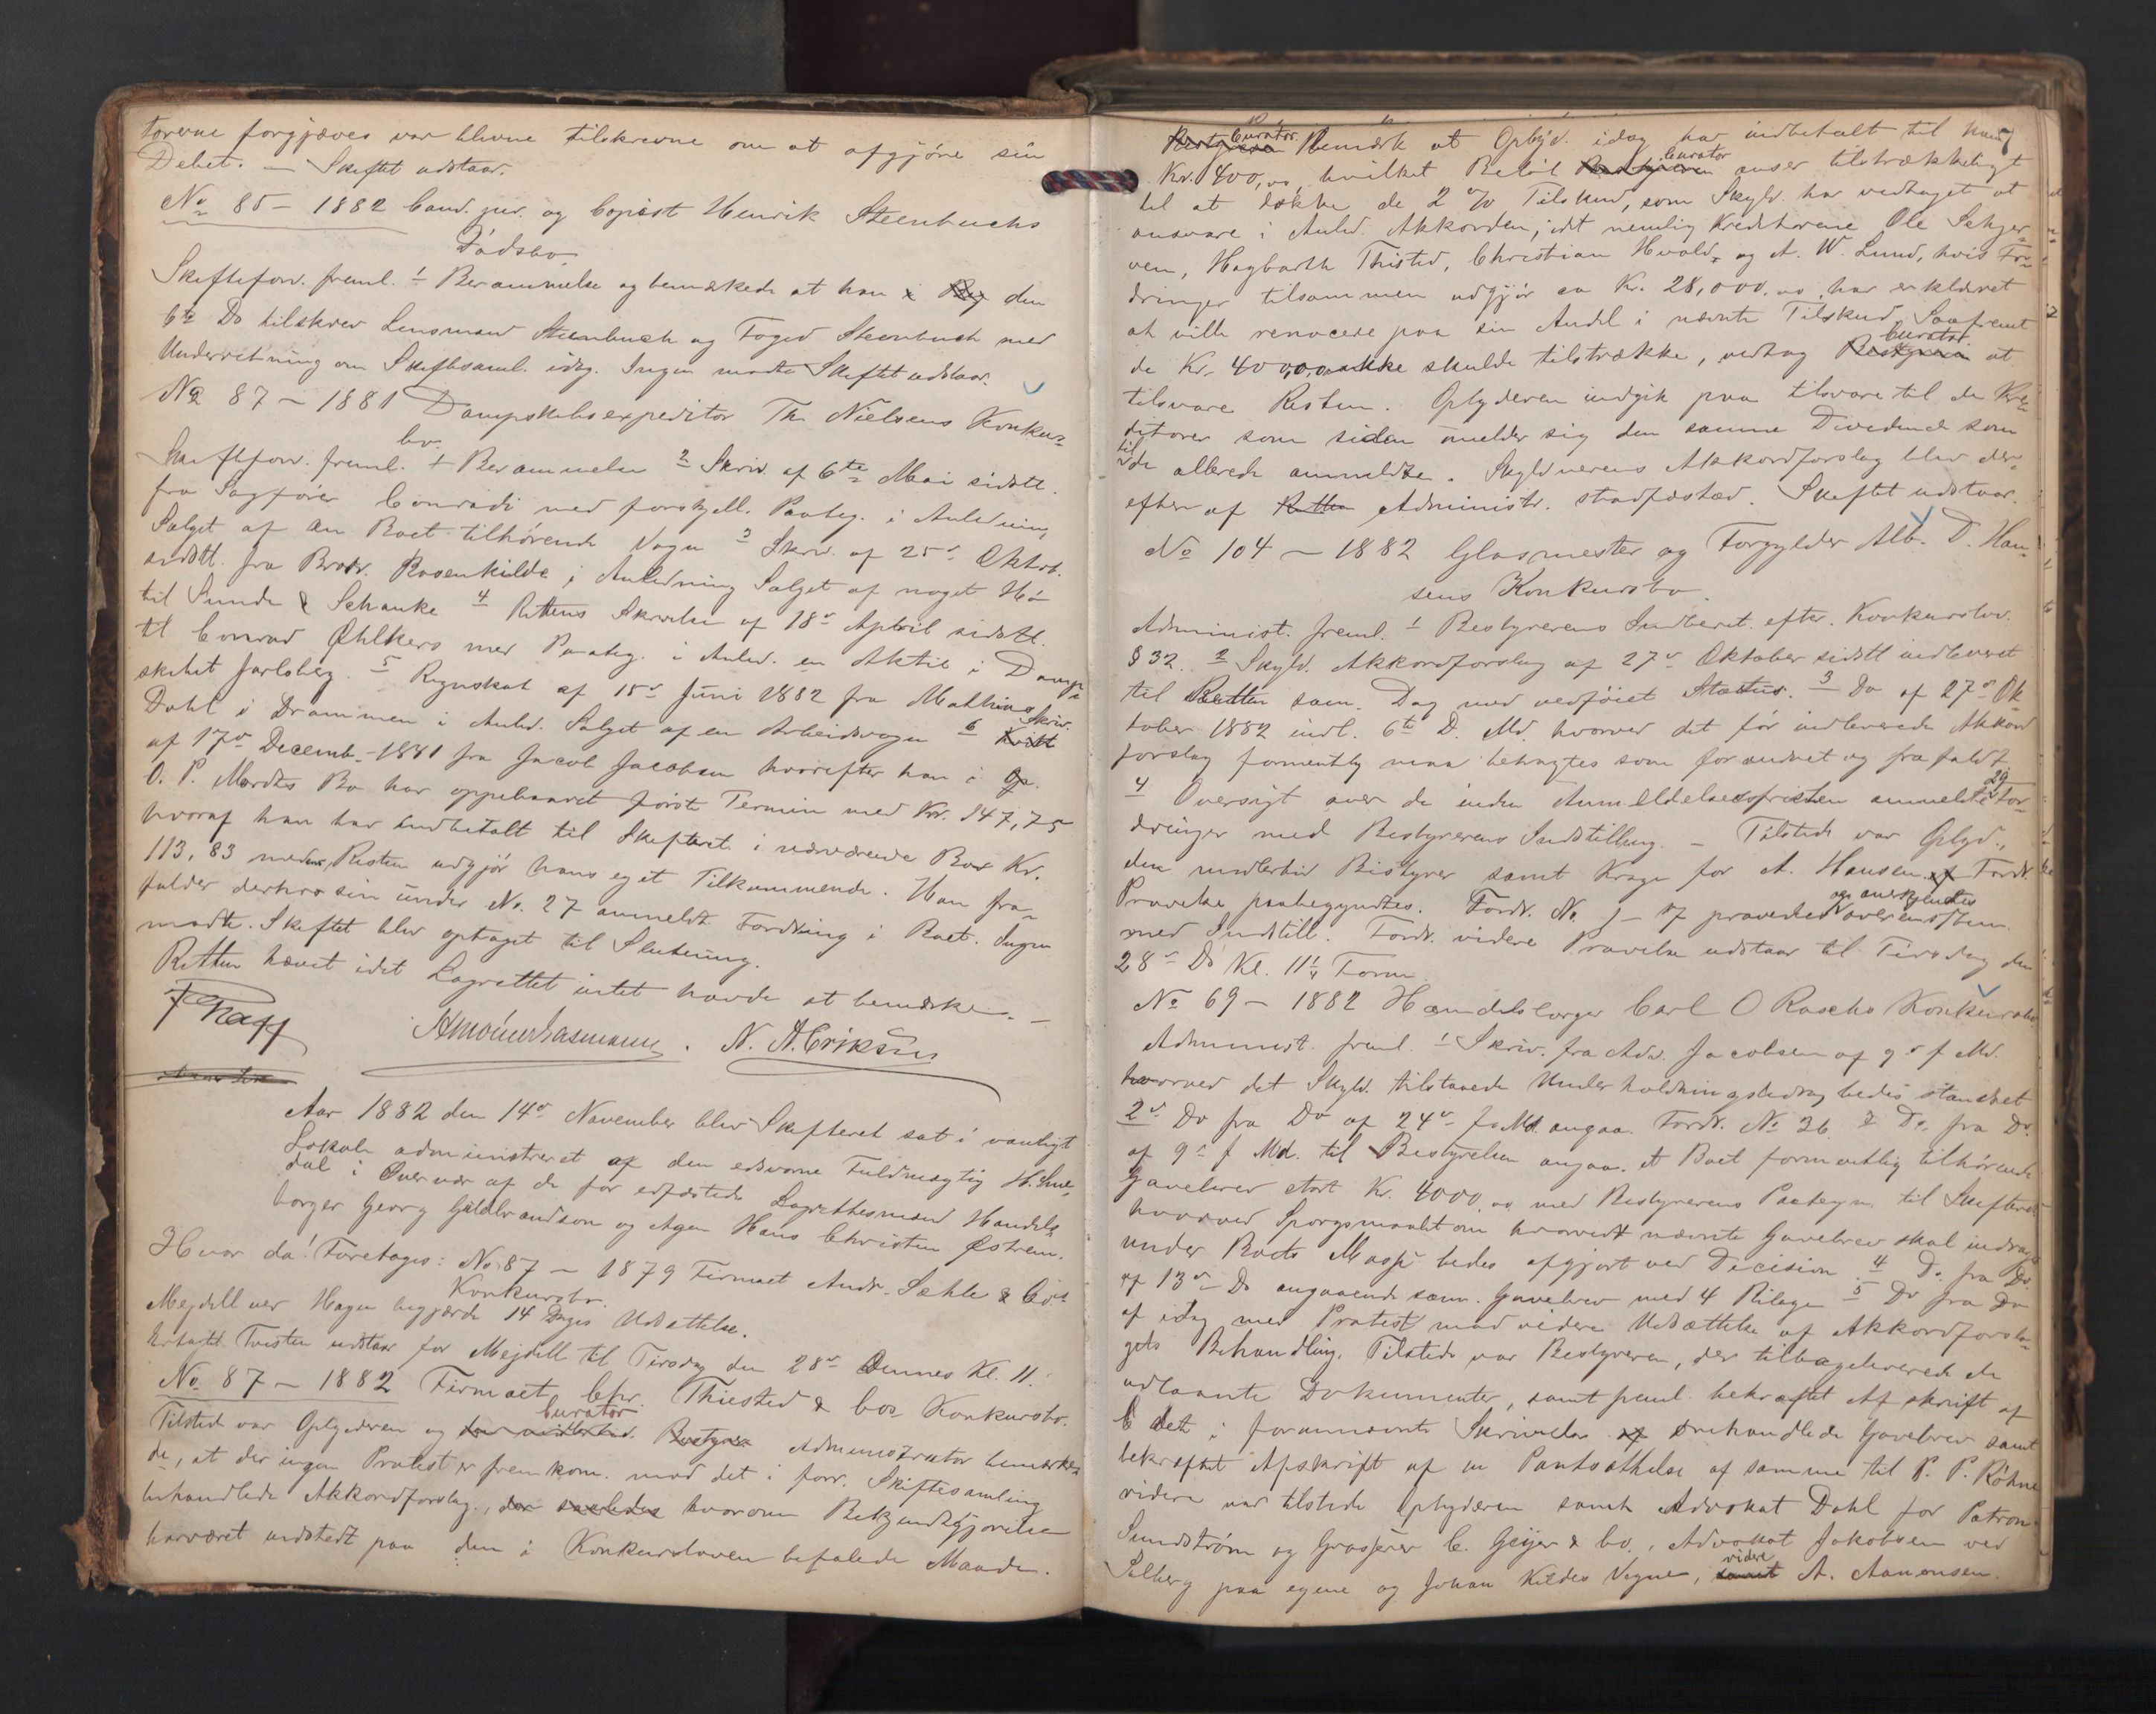 torerne forgjæves var blevne tilskrevne om at afgjøre sin
Debet. — Skiftet udstaar.
No 85 – 1882 Cand. jur. og Copiist Henrik Steenbuchs
Dødsbo.
Skifteforv. freml. 1 Berammelse og bemærkede at han i den
6te Ds tilskrev Lensmand Steenbuch og Foged Steenbuch med
Underretning om Skiftesaml. idag. Ingen mødte Skiftet udstaar.
No 87 – 1881 Dampskibsexpeditør Th. Nielsens Konkurs-
bo.
Skifteforv. freml. 1 Berammelse 2 Skriv. af 6te Mai sidstl.
fra Sagfører Conradi med forskjell. Paateg. i Anledning
Salget af en Boet tilhørende Vogn 3 Skriv. af 25de Oktob.
sidstl. fra Brødr. Rosenkilde i Anledning Salget af noget Hø
til Sunde & Schanke 4 Rettens Skrivelse af 18de April sidstl.
til Conrad Øhlkers med Paateg. i Anled. en Aktie i Damp-
skibet Jarlsberg. 5 Regnskab af 15de Juni 1882 fra Mathias
Dahl i Drammen i Anled. Salget af en Arbeidsvogn 6 Skriv.
af 17de Decemb. 1881 fra Jacob Jacobsen hvorefter han i Op.
O. P. Mordts Bo har oppebaaret første Termin med Kr. 147,75
hvoraf han har indbetalt til Skifteret. i nærværende Bo Kr.
113,83 medens Resten udgjør hans eget Tilkommende. Han fra-
falder derhos sin under No. 27 anmeldte Fordring i Boet. Ingen
mødte. Skiftet blev optaget til Slutning.
Retten hævet idet Lagrettet intet havde at bemærke. —
N. A. Eriksen
Aar 1882 den 14de November blev Skifteret sat i vanligt
Lokale administreret af den edsvorne Fuldmægtig H. Sme-
dal i Overvær af de før edfæstede Lagrettesmænd Handels-
borger Georg Gulbrandson og Agen Hans Christen Østrem.
Hvor da! Foretoges: No 87 – 1879 Firmaet Andr. Sæhle & Co.s
Konkursbo.
Mejdell ved Hagen begjærede 14 Dages Udsættelse.
Tvisten udstaar for Mejdell til Tirsdag den 28de Dennes Kl. 11.
No 87 – 1882 Firmaet Chr. Thiested & Cos Konkursbo.
Tilstede var Opbyderen og den midlertid. Bestyrer Curator Administrator bemærke-
de, at der ingen Protest er fremkom. mod det i forr. Skiftesamling
behandlede Akkordforslag, der saaledes hvorom Bekjendtgjørelse
harværet udstedt paa den i Konkursloven befalede Maade.
7
Bestyreren Curator Bemærk at Opbyd. idag har indbetalt til ham
Kr. 400,00, hvilket Beløb Bestyreren Curator anser tilstrækkeligt
til at dække de 2 % Tilskud, som Skyld. har vedtaget at
ansvare i Anled. Akkorden, idet nemlig Kreditorerne Ole Schjer-
ven, Hagbarth Thisted, Christian Hvold, og A. W. Lund, hvis For-
dringer tilsammen udgjør ca Kr. 28,000.00, har erklæret
at ville renocere paa sin Andel i nævnte Tilskud. Saafremt
de Kr. 400,00 ikke skulde tilstrække, vedtog Bestyreren Curator at
tilsvare Resten. Opbyderen indgik paa tilsvare til de Kre-
ditorer som siden melder sig den samme Dividende som
til de allerede anmeldte. Skyldnerens Akkordforslag blev der-
efter af Retten Administr. stadfæsted. Skiftet udstaar.
No 104 – 1882 Glasmester og Forgylder Alb. D. Han-
sens Konkursbo.
Administ. freml. 1 Bestyrerens Indberet. efter. Konkurslov.
§ 32. 2 Skyld. Akkordforslag af 27de Oktober sidstl indleveret
til Retten sam. Dag med vedføiet Status. 3 Do af 27de Ok-
tober 1882 indl. 6te D. Md. hvorved det før indleverede Akkord
forslag formentlig maa betragtes som forandret og frafaldt
4 Oversigt over de inden Anmeldelsesfristen anmeldte 29 For-
dringer med Bestyrerens Indstilling. – Tilstede var Opbyd.,
den midlertid Bestyrer samt Krage for A. Hansen. Fordr.
Prøvelse paabegyndtes. Fordr. No. 1 – 17 prøvedes og anerkjendtes overensstem.
med Indstill. Fordr. videre Prøvelse udstaar til Tirsdag den
28de Ds Kl. 11¼ Form.
No 69 – 1882 Handelsborger Carl O Raschs Konkursbo
Administ. freml. 1 Skriv. fra Adv. Jacobsen af 9de f Md.
hvorved det Skyld. tilstaaede Underholdningsbidrag bedes standset
2de Do fra Do af 24de f. Md. angaa. Fordr. No 36. 3 Do. fra Do.
af 9de f Md. til Bestyrelsen angaa. et Boet formentlig tilhørende
Gavebrev stort Kr. 4000,00 med Bestyrerens Paategn. til Skifteret
hvorved Spørgsmaalet om hvorvidt nævnte Gavebrev skal inddrages
under Boets Masse bedes afgjort ved Decision. 4 Do. fra Do.
af 13de Ds angaaende samm. Gavebrev med 4 Bilage 5 Do fra Do
af idag med Protest mod videre Udsættelse af Akkordforsla-
gets Behandling. Tilstede var Bestyreren, der tilbageleverede de
udlaante Dokumenter, samt freml. bekræftet Afskrift af
det i forannævnte Skrivelse af omhandlede Gavebrev samt
bekræftet Afskrift af en Pantsættelse af samme til P. P. Røhne
videre var tilstede Opbyderen samt Advokat Dahl for Patron
Sundstrøm og Grosserer C. Geijer & Co., Advokat Jakobsen ved
Solberg paa egne og Johan Kildes Vegne, samt videre A. Aanonsen.